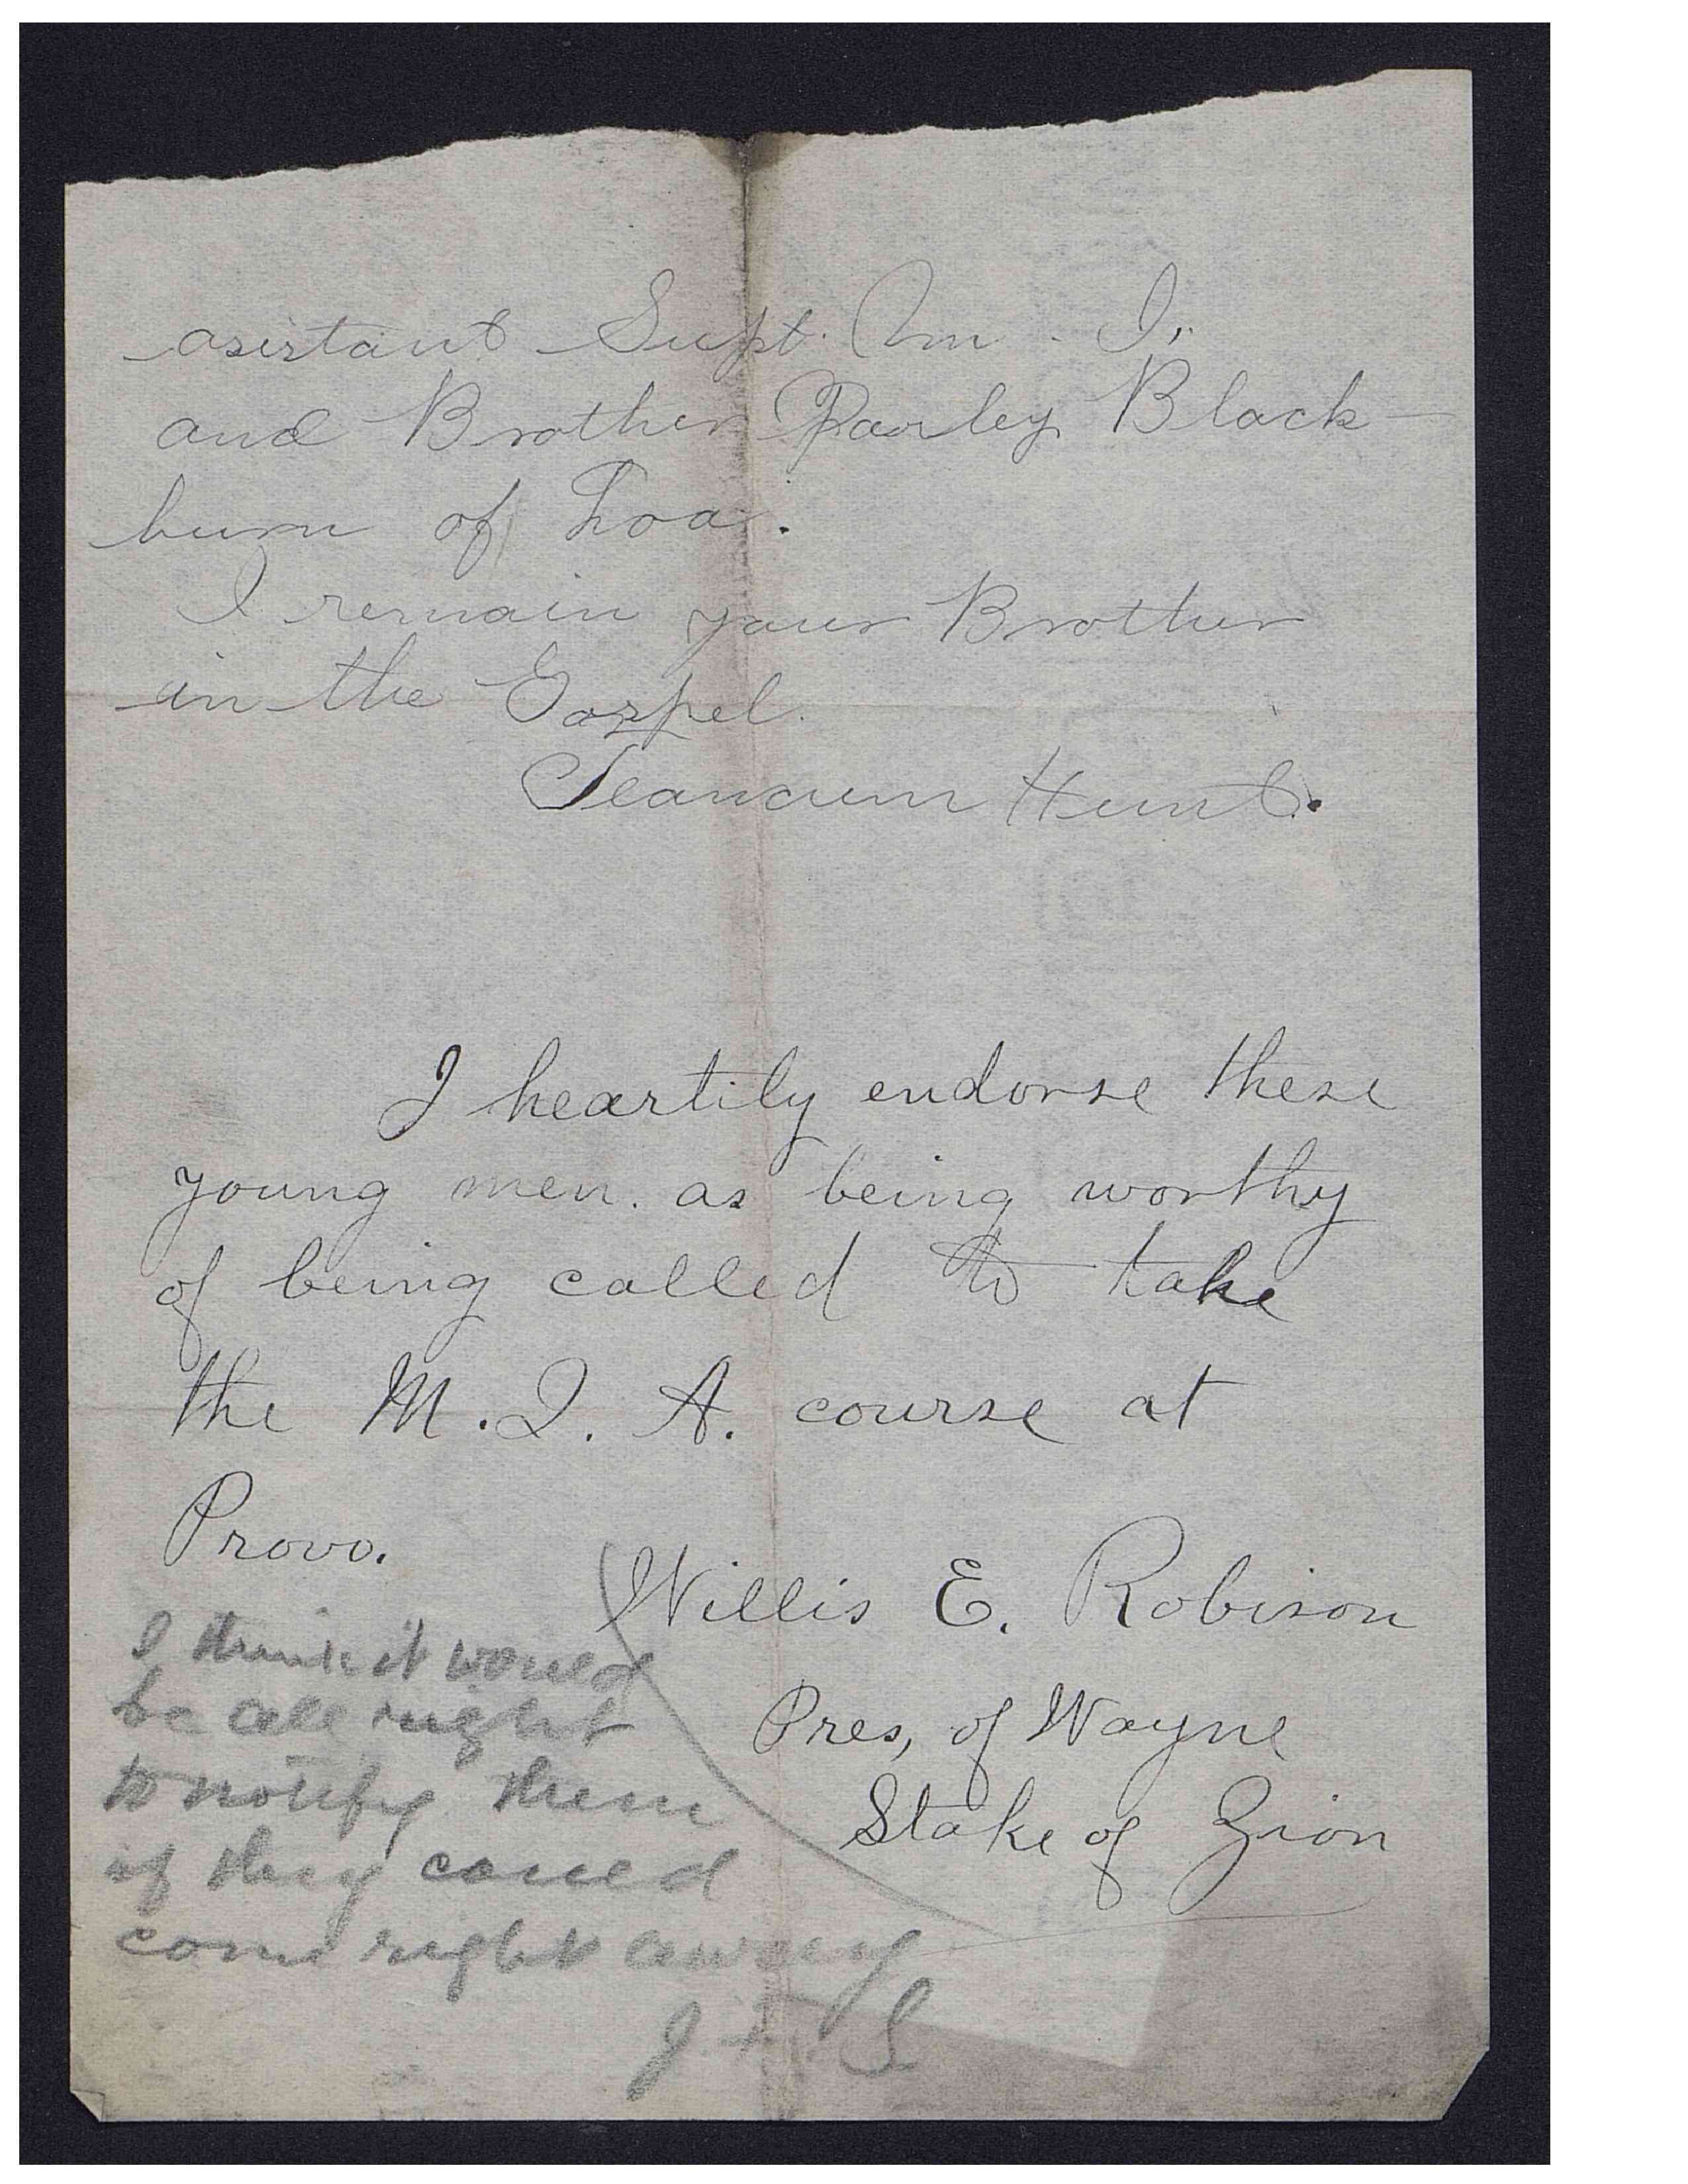 asistant Supt. M. I.
and Brother Parley Black-
burn of Loa.
I remain your Brother
in the Gospel.
Teancum Hunt.
I heartily endorse these
young men. as being worthy
of being called to take
the M. I. A. course at
Provo.
Willis E. Robison
Pres, of Wayne
Stake of Zion
I think it would
be all right
to notify them
if they could
come right away
J. F. S.